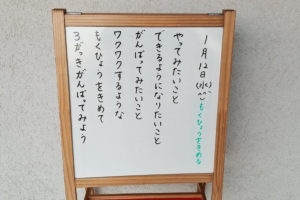 1月12日(水) もくひょうをきめる
やってみたいこと
できるようになりたいこと
がんばってみたいこと
ワクワクするような
もくひょうをきめて
3がっきがんばってみよう